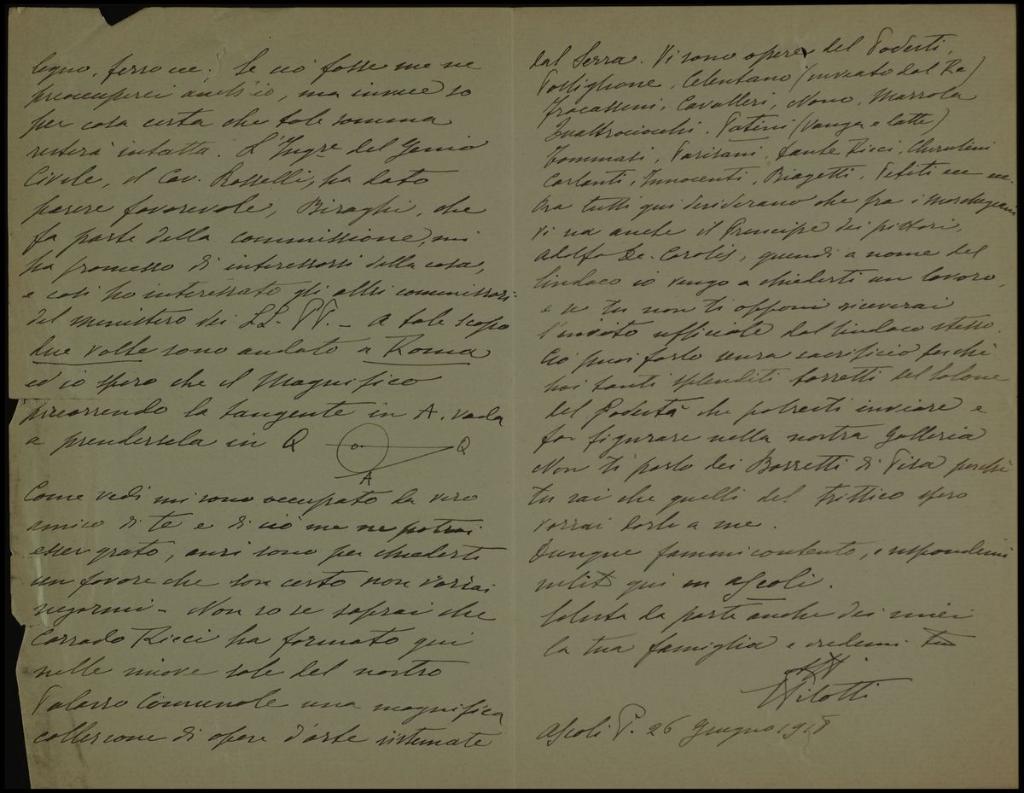 legno, ferro ecc. Se ciò fosse me ne
preoccuperei anch'io, ma invece so
per cosa certa che tale somma
resterà intatta. L'Ingre del Genio
Civile, il Cav. Rosselli, ha dato
parere favorevole, Biraghi, che
fa parte della commissione, mi
ha promesso di interessarsi della cosa,
e così ho interessato gli altri commissari
del ministero dei LL. PP. - A tale scopo
due volte sono andato a Roma
ed io spero che il Magnifico
percorrendo la tangente in A. vada
a prendersela in Q
Q
A
Come vedi mi sono occupato da vero
amico di te e di ciò me ne potrai
esser grato, anzi sono per chiederti
un favore che son certo non vorrai
negarmi - Non so se saprai che
Corrado Ricci ha formato qui
nelle nuove sale del nostro
Palazzo Comunale una magnifica
collezione di opere d'arte sistemate
dal Serra. Vi sono opere del Podesti,
Postiglione, Celentano (inviato dal Re)
Fracassini, Cavalleri, Nono, Marzola
Quattrociocchi, Patini (Vanga e latte)
Tommasi, Parisani, Dante Ricci, Cherubini
Carlanti, Innocenti, Biagetti, Petiti ecc ecc.
Ora tutti qui desiderano che fra i marchegiani
vi sia anche il Principe dei pittori,
Adolfo De-Carolis, quindi a nome del
Sindaco io vengo a chiederti un lavoro,
e se tu non ti opponi riceverai
l'invito ufficiale dal Sindaco stesso.
Ciò puoi farlo senza sacrificio perchè
hai tanti splenditi bozzetti del Salone
del Podestà che potresti inviare e
far figurare nella nostra Galleria
Non ti parlo dei Bozzetti di Pisa perchè
tu sai che quelli del trittico spero
vorrai darli a me.
Dunque fammi contento, e rispondimi
subito qui in Ascoli.
Saluta da parte anche dei miei
la tua famiglia e credimi tuo
Pilotti
Ascoli P. 26 Giugno 1918